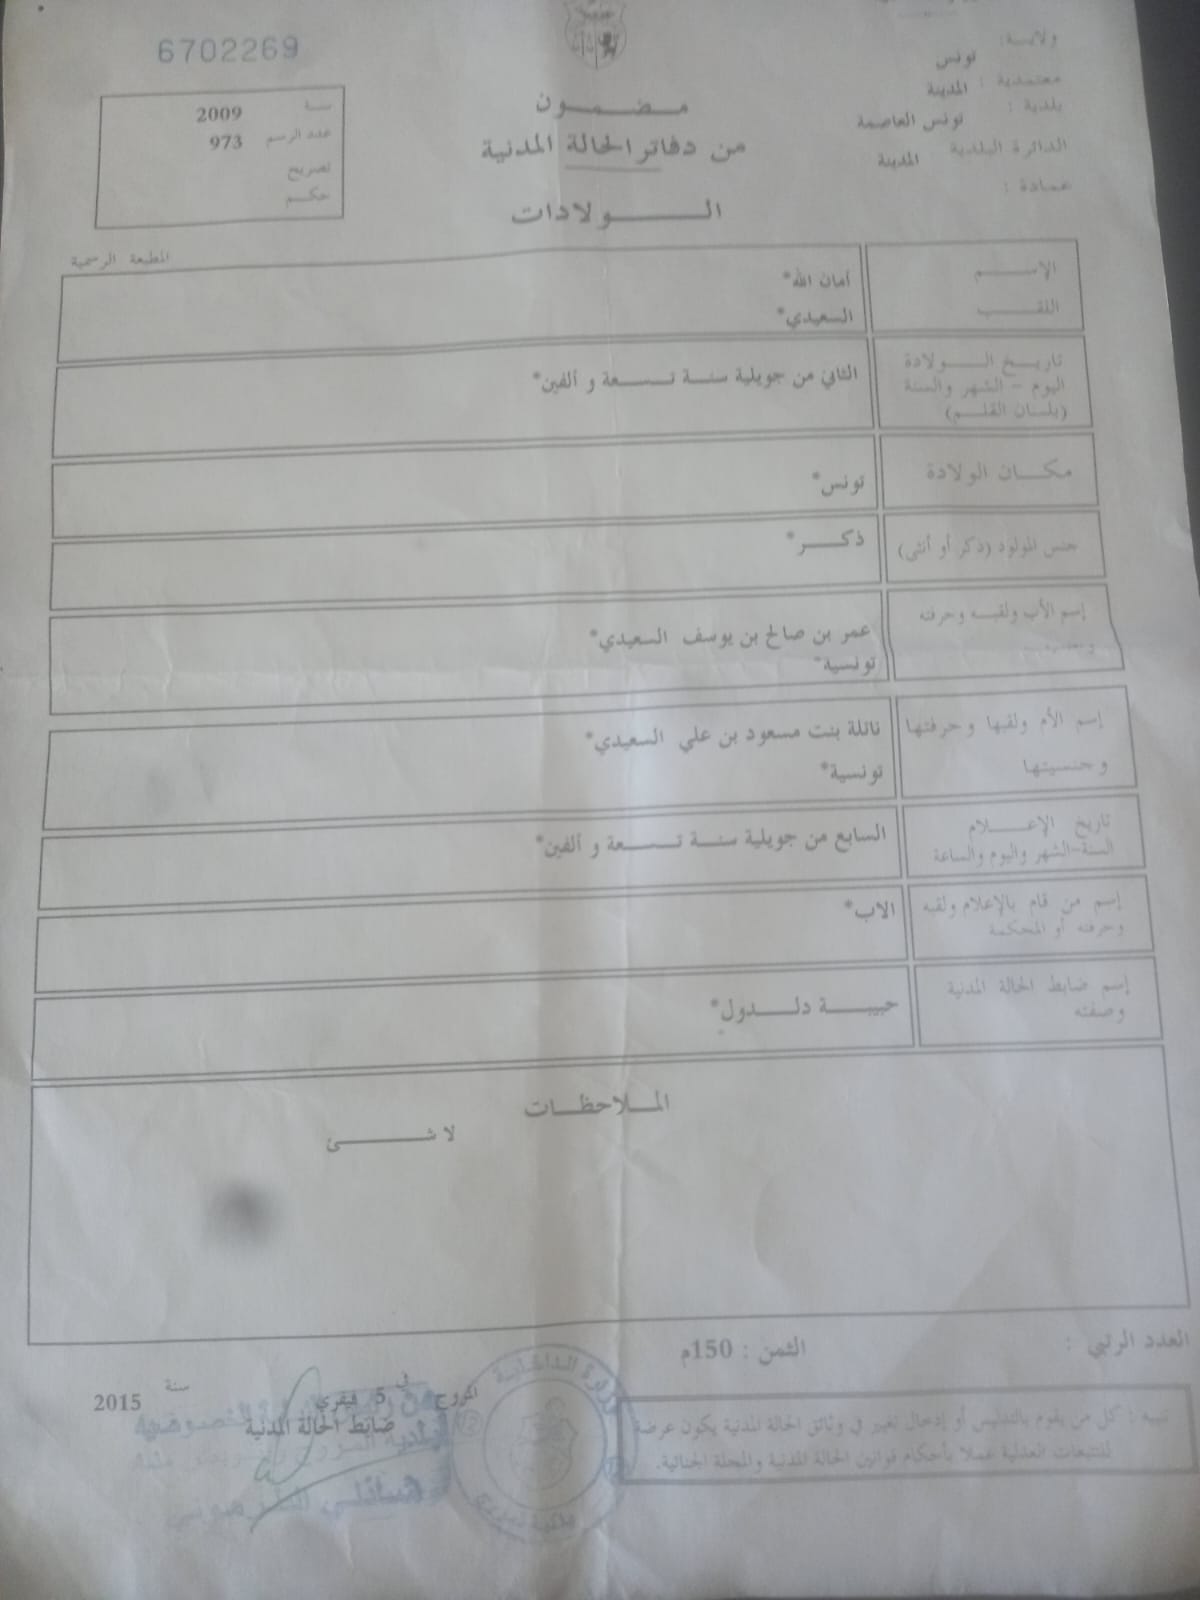 6702269
ولاية: تونس
معتمدية : المدينة
بلدية : تونس العاصمة
الدائرة البلدية المدينة
عمادة :
مضمون
من دفاتر الحالة المدنية
الولادات
سنة 2009
عدد الرسم 973
تصريح
حكم
المطبعة الرسمية
الإسم أمان الله*
اللقب السعيدي*
تاريخ الولادة
اليوم - الشهر والسنة
(بلسان القلم)
الثاني من جويلية سنة تسعة و ألفين*
مكان الولادة تونس*
جنس المولود (ذكر أو أنثى) ذكر*
إسم الأب ولقبه وحرفته
عمر بن صالح بن يوسف السعيدي*
تونسية*
إسم الأم ولقبها وحرفتها
وجنسيتها
نائلة بنت مسعود بن علي السعيدي*
تونسية*
تاريخ الإعلام
السنة-الشهر واليوم والساعة
السابع من جويلية سنة تسعة و ألفين*
إسم من قام بالإعلام ولقبه
وحرفته أو المحكمة
الاب*
إسم ضابط الحالة المدنية
وصفته
حبيبة دلدول*
الملاحظات
لا شئ
العدد الرتبي :
الثمن : 150م
المروج في 5 فيفري سنة 2015
ضابط الحالة المدنية
تنبيه : كل من يقوم بالتدليس أو إدخال تغيير في وثائق الحالة المدنية يكون عرضة
للتتبعات العدلية عملا بأحكام قوانين الحالة المدنية والمجلة الجنائية.
وزارة الداخلية